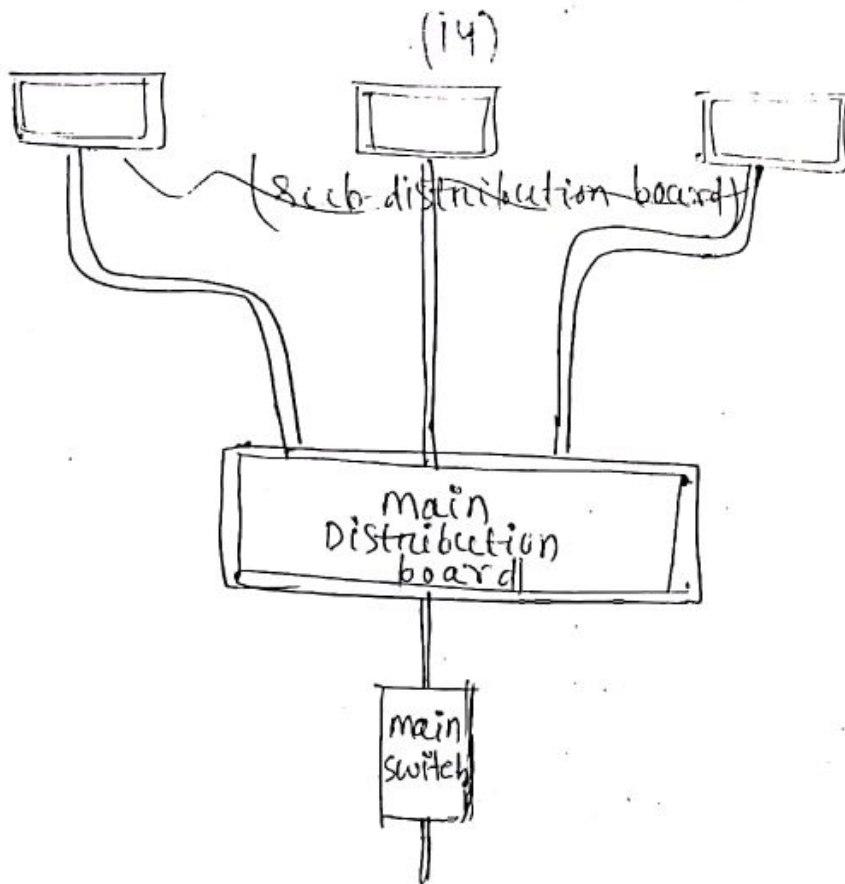 (14)
(Sub-distribution board)
main
Distribution
board
main
switch